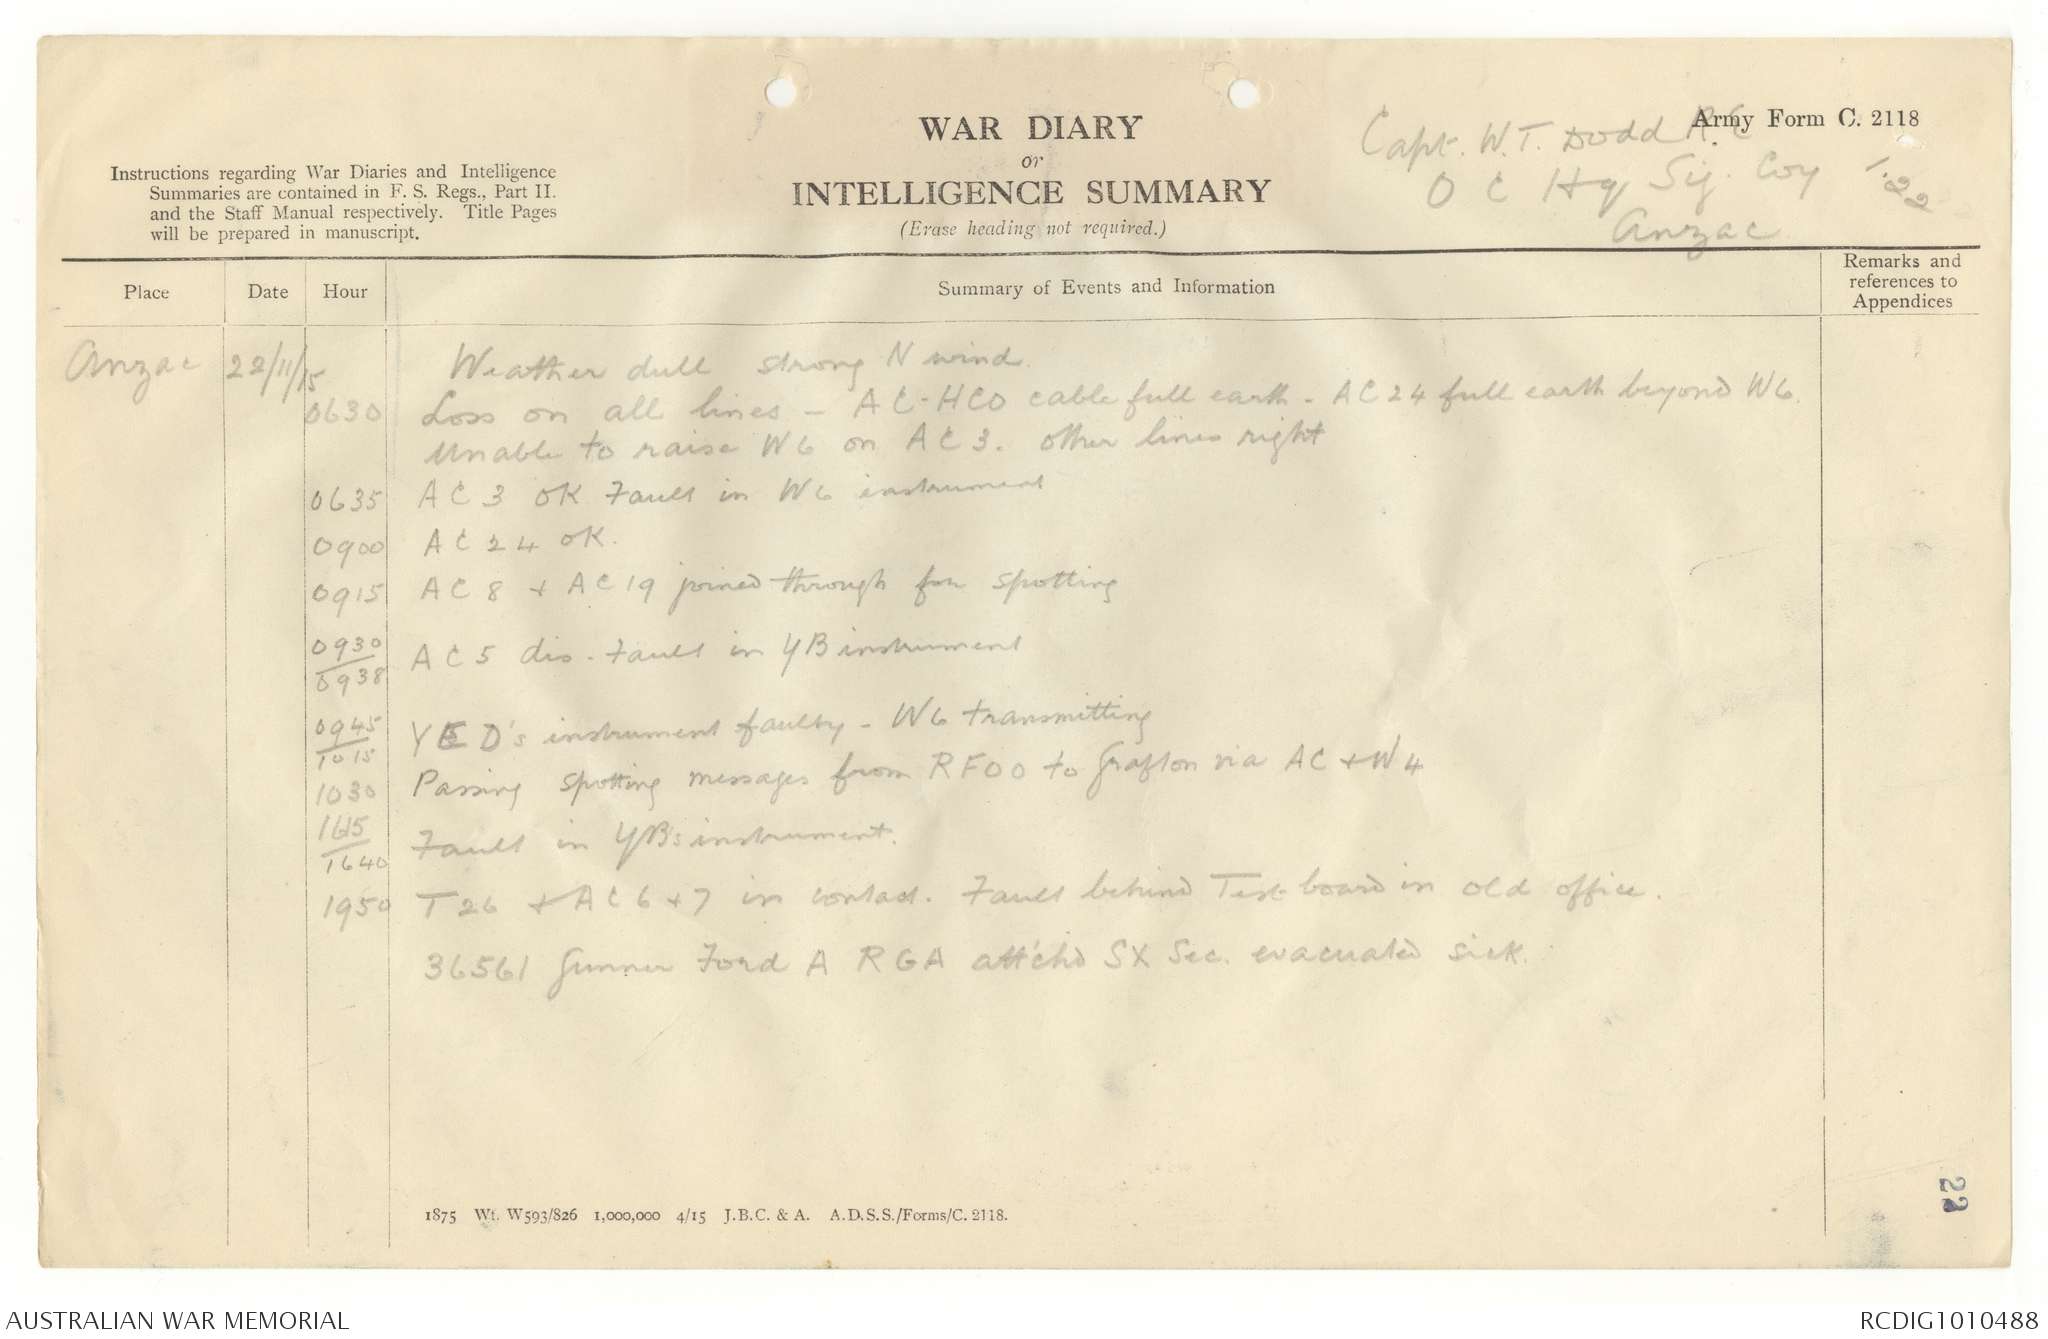 WAR DIARY
or
INTELLIGENCE SUMMARY
(Erase heading not required.)
Army Form C. 2118
Instructions regarding War Diaries and Intelligence
Summaries are contained in F. S. Regs., Part II.
and the Staff Manual respectively. Title Pages
will be prepared in manuscript.
Capt. W.T. Dodd R.E
O C Hq Sig. Coy
Anzac
1.22
Place
Date
Hour
Summary of Events and Information
Remarks and
references to
Appendices
Anzac 22/11/15 Weather dull strong N wind.
0630 Loss on all lines - AC-HCO cable full earth - AC24 full earth beyond W6.
Unable to raise W6 on AC3. Other lines right
0635 AC3 OK Fault in W6 instrument
0900 AC24 OK.
0915 AC8 + AC19 joined through for spotting
0930
0938 AC5 dis. Fault in YB instrument
0945
1015 YED's instrument faulty - W6 transmitting
1030 Passing spotting messages from RFOO to Grafton via AC + W4
1615
1640 Fault in YB's instrument.
1950 T26 + AC6+7 in contact. Fault behind Test board in old office.
36561 Gunner Ford A RGA att'chd SX Sec. evacuated sick.
1875 Wt. W593/826 1,000,000 4/15 J.B.C. & A. A.D.S.S./Forms/C. 2118.
22
AUSTRALIAN WAR MEMORIAL
RCDIG1010488